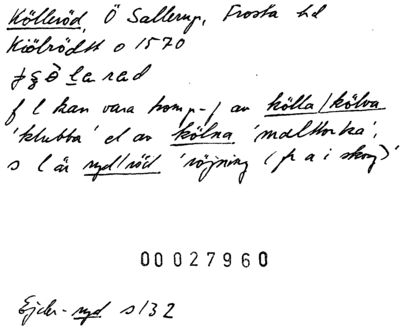 Kölleröd, Ö Sallerup, Frosta hd
Kiölrödtt o 1570
fl kan vara komp-f av kölla/kölva
'klubba' el av kölna 'malttorka',
sl är ryd/röd 'röjning (fr a i skog)'
00027960
Ejder- ryd s132